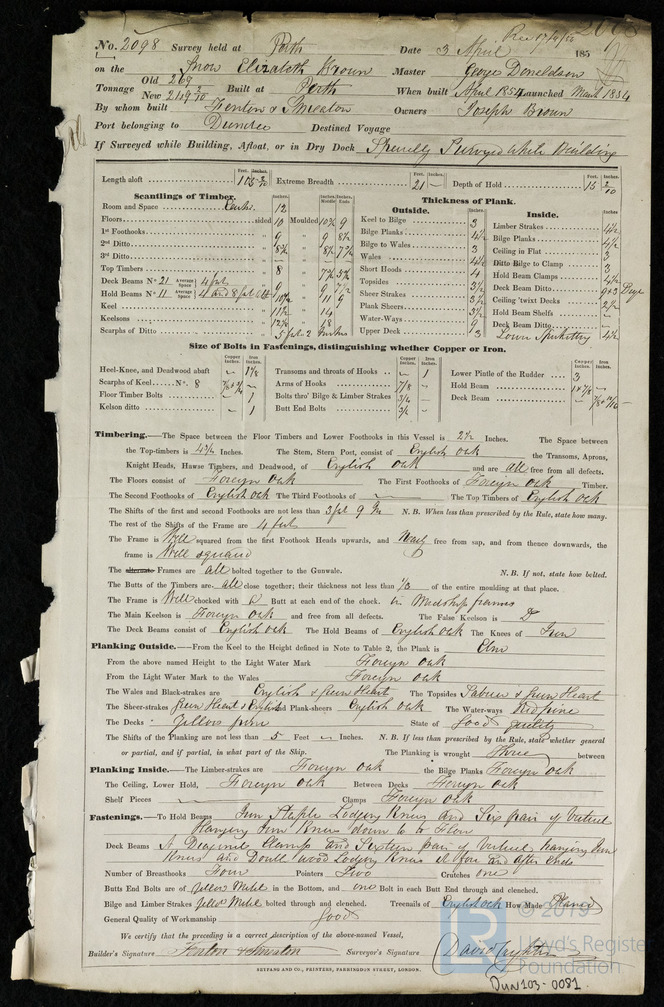 Rec 17/4/54
No. 2098 Survey held at Perth Date 3 April 185
on the Snow Elizabeth Brown Master George Donaldson
Tonnage Old 269 New 249 Built at Perth When built April 1854 Launched March 1854
By whom built Fenton & Smeaton Owners Joseph Brown
Port belonging to Dundee Destined Voyage
If Surveyed while Building, Afloat, or in Dry Dock Specially Surveyed While Building
Length aloft Feet. Inches. Extreme Breadth Feet. Inches. 21 – Depth of Hold Feet. Inches. 15
Scantlings of Timber. Thickness of Plank.
Outside. Inside.
Room and Space 12
Floors sided 10 Moulded 10½ 9
1st Foothooks 9 9 8½
2nd Ditto 8¾ 8½ 7¾
3rd Ditto
Top Timbers 8 7¾ 5¾
Deck Beams No. 21 Average Space 4 feet
Hold Beams No. 11 Average Space 4 and 8 feet
Keel
Keelsons
Scarphs of Ditto
Keel to Bilge 3
Bilge Planks 4½
Bilge to Wales 3
Wales 4½
Short Hoods 4
Topsides 3½
Sheer Strakes 3½
Plank Sheers 3½
Water-Ways 9
Upper Deck 3
Limber Strakes 4½
Bilge Planks 4½
Ceiling in Flat 3
Ditto Bilge to Clamp 3
Hold Beam Clamps 4½
Deck Beam Ditto
Ceiling 'twixt Decks 2½
Hold Beam Shelfs –
Deck Beam Ditto –
Lower Spirketting 4½
Size of Bolts in Fastenings, distinguishing whether Copper or Iron.
Copper Inches. Iron Inches. Copper Inches. Iron Inches. Copper Inches. Iron Inches.
Heel-Knee, and Deadwood abaft – 1⅛
Scarphs of Keel No. 8
Floor Timber Bolts – 1
Kelson ditto – 1
Transoms and throats of Hooks – 1
Arms of Hooks 7/8 –
Bolts thro' Bilge & Limber Strakes 3/4 –
Butt End Bolts 3/4 –
Lower Pintle of the Rudder 3
Hold Beam
Deck Beam
Timbering.—The Space between the Floor Timbers and Lower Foothooks in this Vessel is 2½ Inches. The Space between
the Top-timbers is 4¾ Inches. The Stem, Stern Post, consist of English Oak the Transoms, Aprons,
Knight Heads, Hawse Timbers, and Deadwood, of English Oak and are all free from all defects.
The Floors consist of Foreign Oak The First Foothooks of Foreign Oak Timber.
The Second Foothooks of English Oak The Third Foothooks of – The Top Timbers of English Oak
The Shifts of the first and second Foothooks are not less than 3 feet 9 In N. B. When less than prescribed by the Rule, state how many.
The rest of the Shifts of the Frame are 4 feet
The Frame is Well squared from the first Foothook Heads upwards, and Well free from sap, and from thence downwards, the
frame is Well squared
The alternate Frames are all bolted together to the Gunwale. N. B. If not, state how bolted.
The Butts of the Timbers are all close together; their thickness not less than 1/3 of the entire moulding at that place.
The Frame is Well chocked with a Butt at each end of the chock. in Midship frames
The Main Keelson is Foreign Oak and free from all defects. The False Keelson is
The Deck Beams consist of English Oak The Hold Beams of English Oak The Knees of Iron
Planking Outside.—From the Keel to the Height defined in Note to Table 2, the Plank is Elm
From the above named Height to the Light Water Mark Foreign Oak
From the Light Water Mark to the Wales Foreign Oak
The Wales and Black-strakes are English & Green Heart The Topsides Sabicu & Green Heart
The Sheer-strakes Green Heart & English Plank-sheers English Oak The Water-ways Red pine
The Decks Yellow pine State of Good quality
The Shifts of the Planking are not less than 5 Feet – Inches. N. B. If less than prescribed by the Rule, state whether general
or partial, and if partial, in what part of the Ship. The Planking is wrought Three between
Planking Inside.—The Limber-strakes are Foreign Oak the Bilge Planks Foreign Oak
The Ceiling, Lower Hold, Foreign Oak Between Decks Foreign Oak
Shelf Pieces – Clamps Foreign Oak
Fastenings.—To Hold Beams Iron Staple Lodging Knees and Six pair of Vertical
Hanging Iron Knees down to to Floor
Deck Beams A Diagonal Clamp and Sixteen pair of Vertical hanging Iron
Knees and Double wood Lodging Knees at fore and after Ends
Number of Breasthooks Four Pointers Two Crutches one
Butts End Bolts are of Yellow Metal in the Bottom, and one Bolt in each Butt End through and clenched.
Bilge and Limber Strakes Yellow Metal bolted through and clenched. Treenails of English oak How Made Planed
General Quality of Workmanship Good
We certify that the preceding is a correct description of the above-named Vessel,
Builder's Signature Fenton & Smeaton Surveyor's Signature David Crighton
SEYFANG AND CO., PRINTERS, FARRINGDON STREET, LONDON.
© 2019
Lloyd's Register
Foundation
DUN103-0081